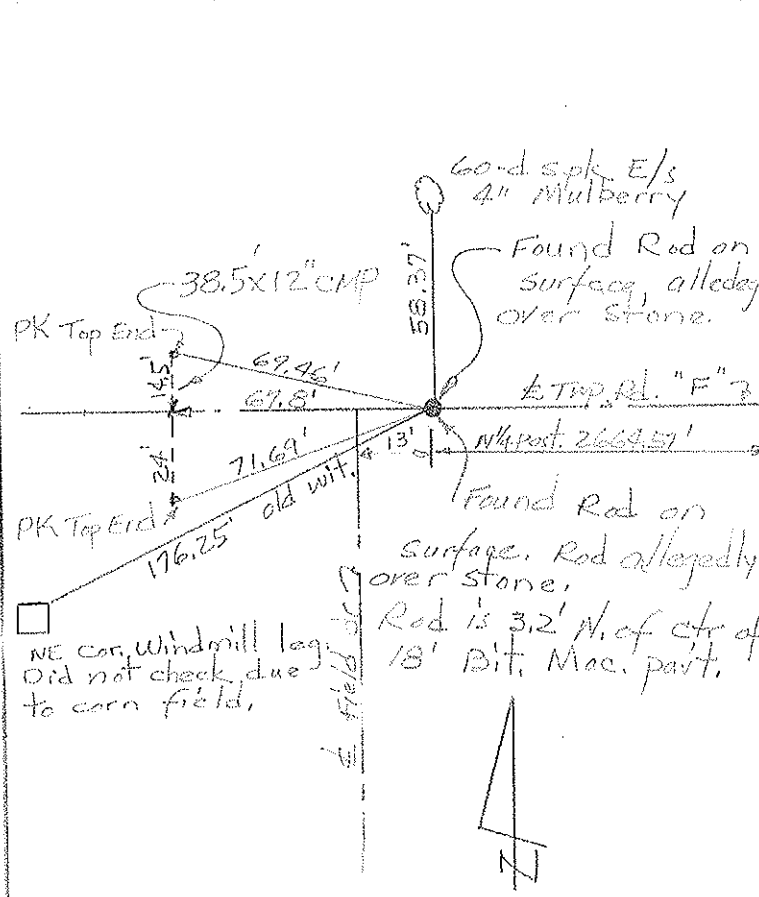 60-d spk E/s
4" Mulberry
Found Rod on
surface, alledag
over stone.
38.5'x12" CMP
58.37'
PK Top End
14.5'
69.46'
69.8'
℄ Twp. Rd. "F"
13'
N¼ Post. 2664.59'
24'
71.69'
old wit.
176.25'
PK Top End
Found Rod on
surface. Rod allegedly
over stone.
Rod is 3.2' N. of ctr of
18' Bit. Mac. pav't.
NE Cor. Windmill leg.
Did not check due
to corn field.
℄ Field dr.
N